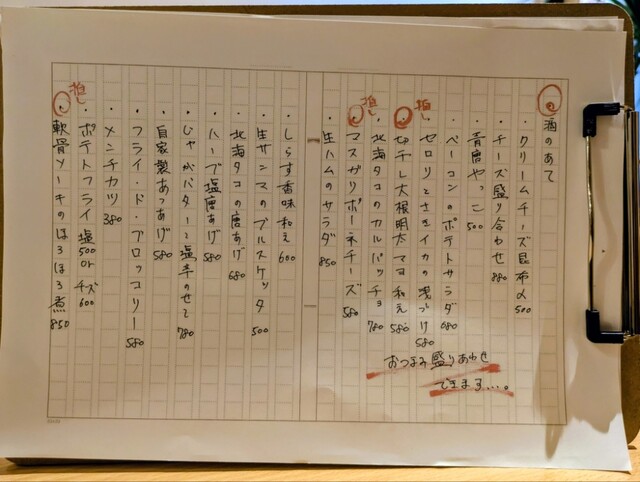 酒のあて
・クリームチーズ昆布〆 500
・チーズ盛り合わせ 880
・青唐やっこ 500
・ベーコンのポテトサラダ 680
推し
・セロリとさきイカの浅づけ 580
・切干し大根明太マヨ和え 580
推し
・北海タコのカルパッチョ 780
・マスカルポーネチーズ 580
・生ハムのサラダ 850
おつまみ盛りあわせ
できます…。
・しらす香味和え 600
・生サンマのブルスケッタ 500
・北海タコの唐あげ 680
・ハーブ塩唐あげ 580
・じゃがバター塩辛のせて 780
・自家製あつあげ 580
・フライ・ド・ブロッコリー 580
・メンチカツ 380
推し
・ポテトフライ 塩500 or チーズ600
・軟骨ソーキのほろほろ煮 850